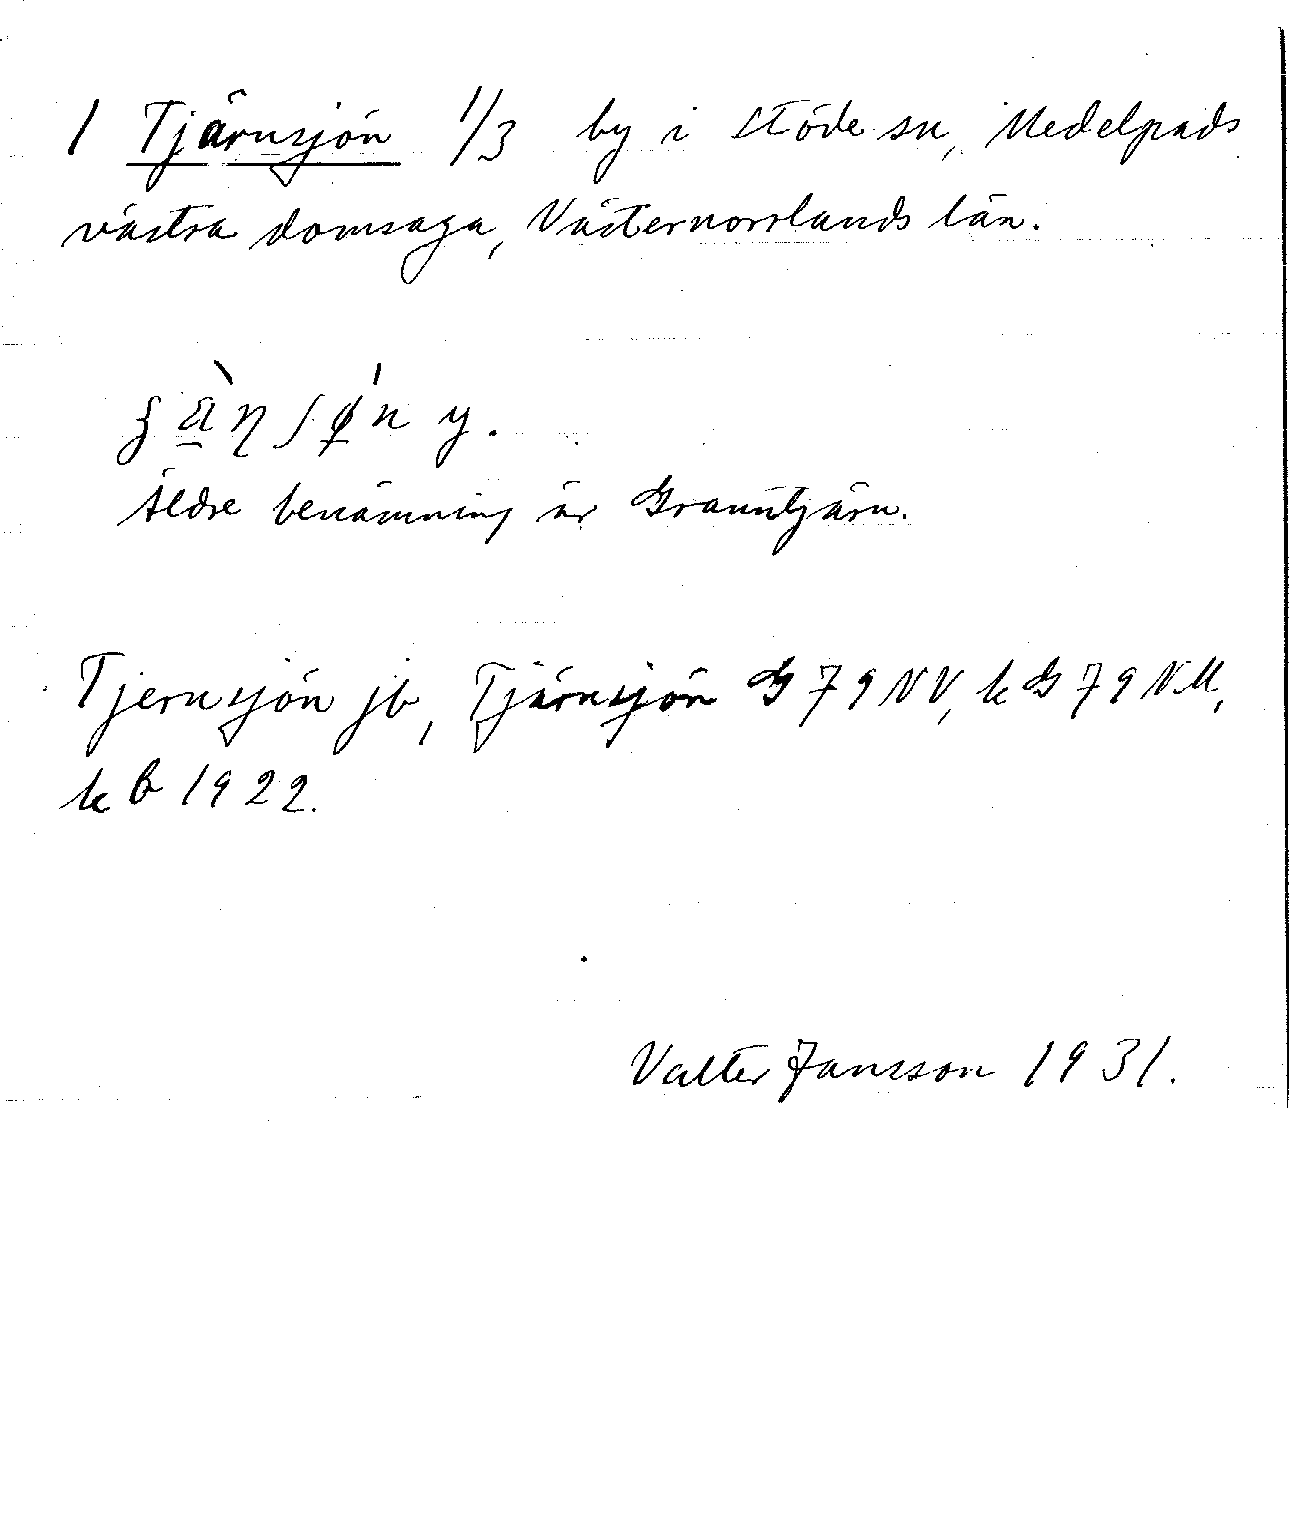 1 Tjärnsjön 1/3 by i Stöde sn, Medelpads
västra domsaga, Västernorrlands län.
y.
Äldre benämning är Granntjärn.
Tjernsjön jb, Tjärnsjön G 79 NV, k G 79 NM,
kb 1922.
Valter Jansson 1931.